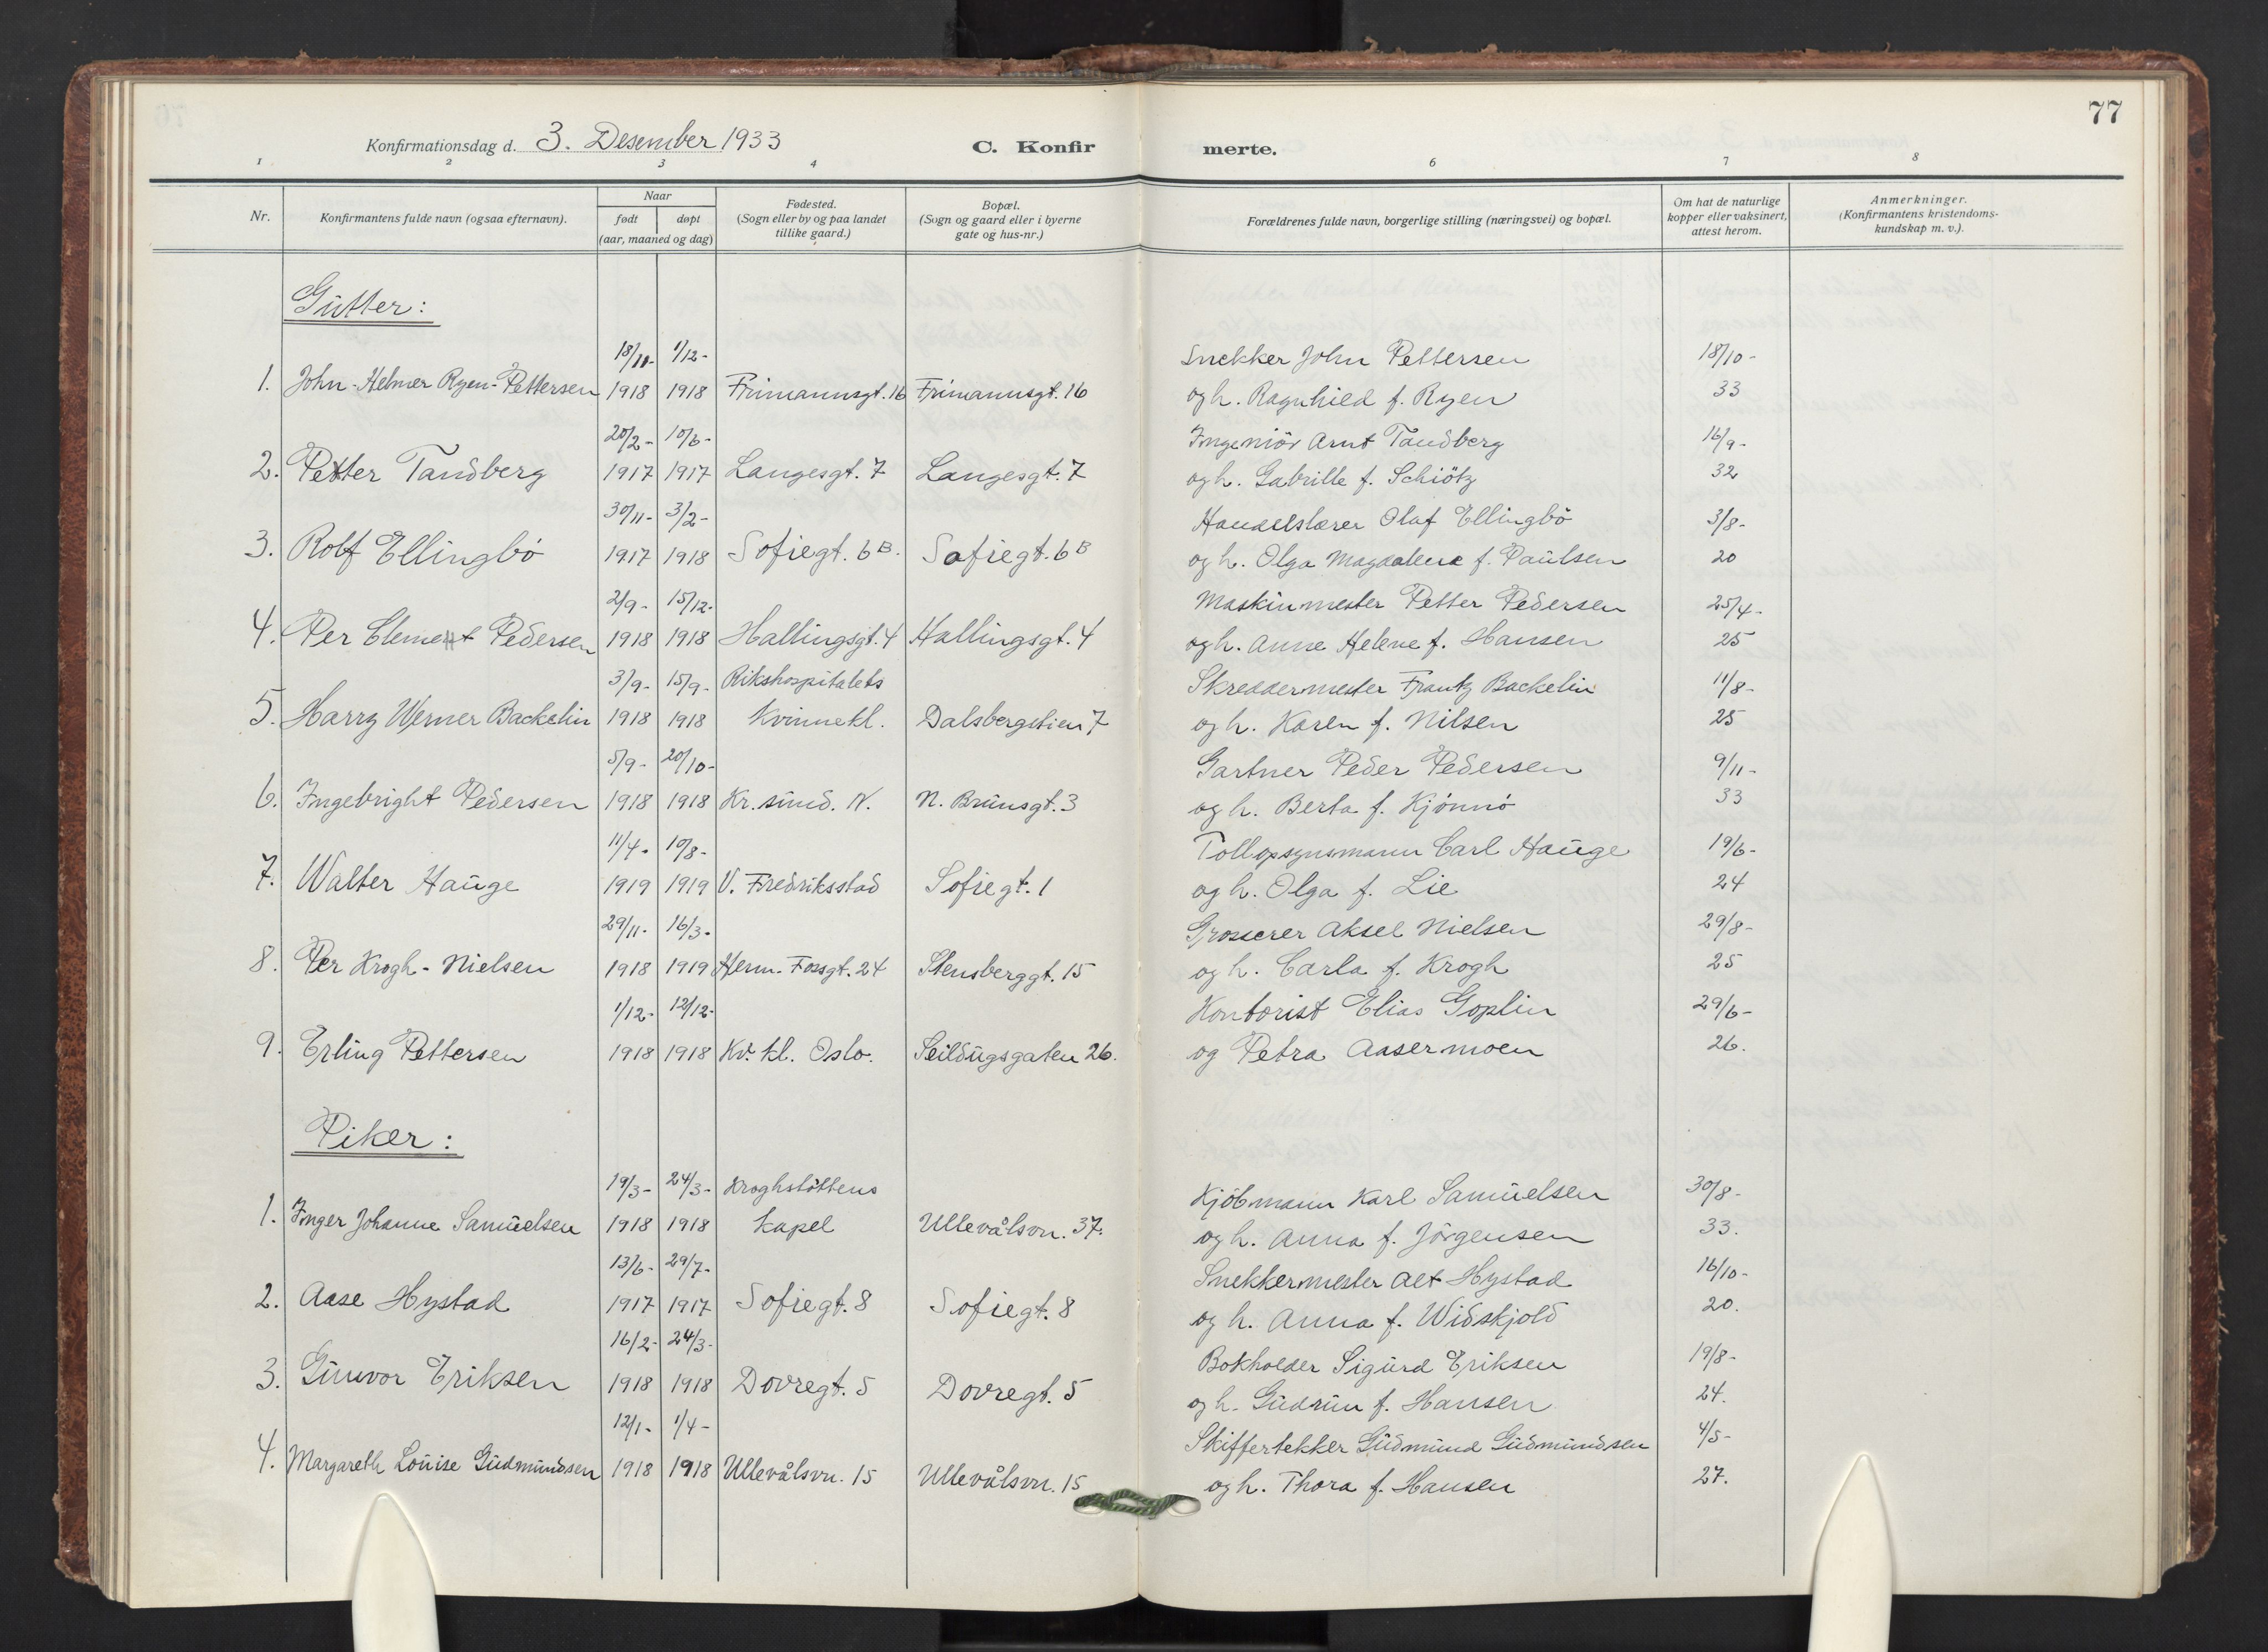 77
Konfirmationsdag d. 3. Desember 1933 C. Konfir merte.
1 2 3 4 6 7 8
Nr. Konfirmantens fulde navn (ogsaa efternavn). Naar født døpt (aar, maaned og dag) Fødested. (Sogn eller by og paa landet tillike gaard.) Bopæl. (Sogn og gaard eller i byerne gate og hus-nr.) Forældrenes fulde navn, borgerlige stilling (næringsvei) og bopæl. Om hat de naturlige kopper eller vaksinert, attest herom. Anmerkninger. (Konfirmantens kristendoms-kundskap m. v.).
Gutter:
18/11- 1/12- Snekker John Pettersen 18/10-
1. John-Helmer Ryen-Pettersen 1918 1918 Frimannsgt. 16 Frimannsgt. 16 og h. Ragnhild f. Ryen 33
20/2- 10/6- Ingeniör Arnt Tandberg 16/9-
2. Petter Tandberg 1917 1917 Langesgt. 7 Langesgt. 7 og h. Gabrille f. Schiötz 32
30/11- 3/2- Handelslærer Olaf Ellingbö 3/8-
3. Rolf Ellingbö 1917 1918 Sofiegt. 6B. Sofiegt. 6B og h. Olga Magdalena f. Paulsen 20
2/9- 15/12- Maskinmester Petter Pedersen 25/4-
4. Per Clement Pedersen 1918 1918 Hallingsgt. 4 Hallingsgt. 4 og h. Anne Helene f. Hansen 25
3/9- 15/9- Rikshospitalets Skreddermester Frantz Backelin 11/8-
5. Harry Werner Backelin 1918 1918 Kvinnekl. Dalsbergstien 7 og h. Karen f. Nilsen 25
5/9- 20/10- Gartner Peder Pedersen 9/11-
6. Ingebright Pedersen 1918 1918 Kr. sund. N. N. Brunsgt. 3 og h. Berta f. Kjönnö 33
11/4- 10/8- Tollopsynsmann Carl Hauge 19/6-
7. Walter Hauge 1919 1919 V. Fredriksstad Sofiegt. 1 og h. Olga f. Lie 24
29/11- 16/3- Grosserer Aksel Nielsen 29/8-
8. Per Krogh-Nielsen 1918 1919 Herm. Fossgt. 24 Stensberggt. 15 og h. Carla f. Krogh 25
1/12- 12/12- Kontorist Elias Goplin 29/6-
9. Erling Pettersen 1918 1918 Kv. kl. Oslo. Seildugsgaten 26. og Petra Aasermoen 26.
Piker:
19/3- 24/3- Kroghstöttens Kjöbmann Karl Samuelsen 30/8-
1. Inger Johanne Samuelsen 1918 1918 kapel Ullevålsvn. 37. og h. Anna f. Jörgensen 33.
13/6- 29/7- Snekkermester Alf Hystad 16/10-
2. Aase Hystad 1917 1917 Sofiegt. 8 Sofiegt. 8 og h. Anna f. Widskjold 20.
16/2- 24/3- Bokholder Sigurd Eriksen 19/8-
3. Gunvor Eriksen 1918 1918 Dovregt. 5 Dovregt. 5 og h. Gudrun f. Hansen 24.
12/1- 1/4- Skiffertekker Gudmund Gudmundsen 4/5-
4. Margareth Louise Gudmundsen 1918 1918 Ullevålsvn. 15 Ullevålsvn. 15 og h. Thora f. Hansen 27.